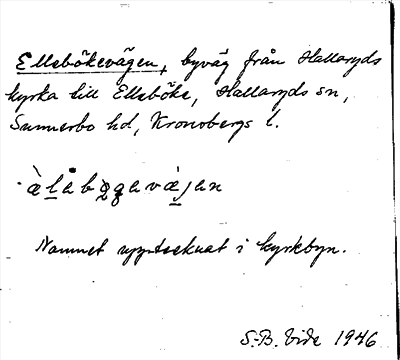 Ellsbökevägen, byväg från Hallaryds
kyrka till Ellsböke, Hallaryds sn,
Sunnerbo hd, Kronobergs l.
Namnet upptecknat i kyrkbyn.
S.-B. Vide 1946